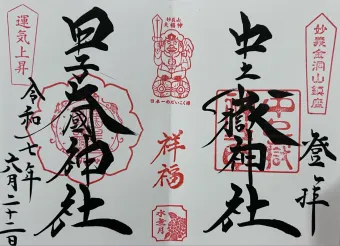 妙義金洞山鎮座
登拝
中之嶽神社
中之嶽
妙義山
大福神
日本一のだいこく様
祥福
水無月
運気上昇
甲子大國神社
令和七年
六月二十二日